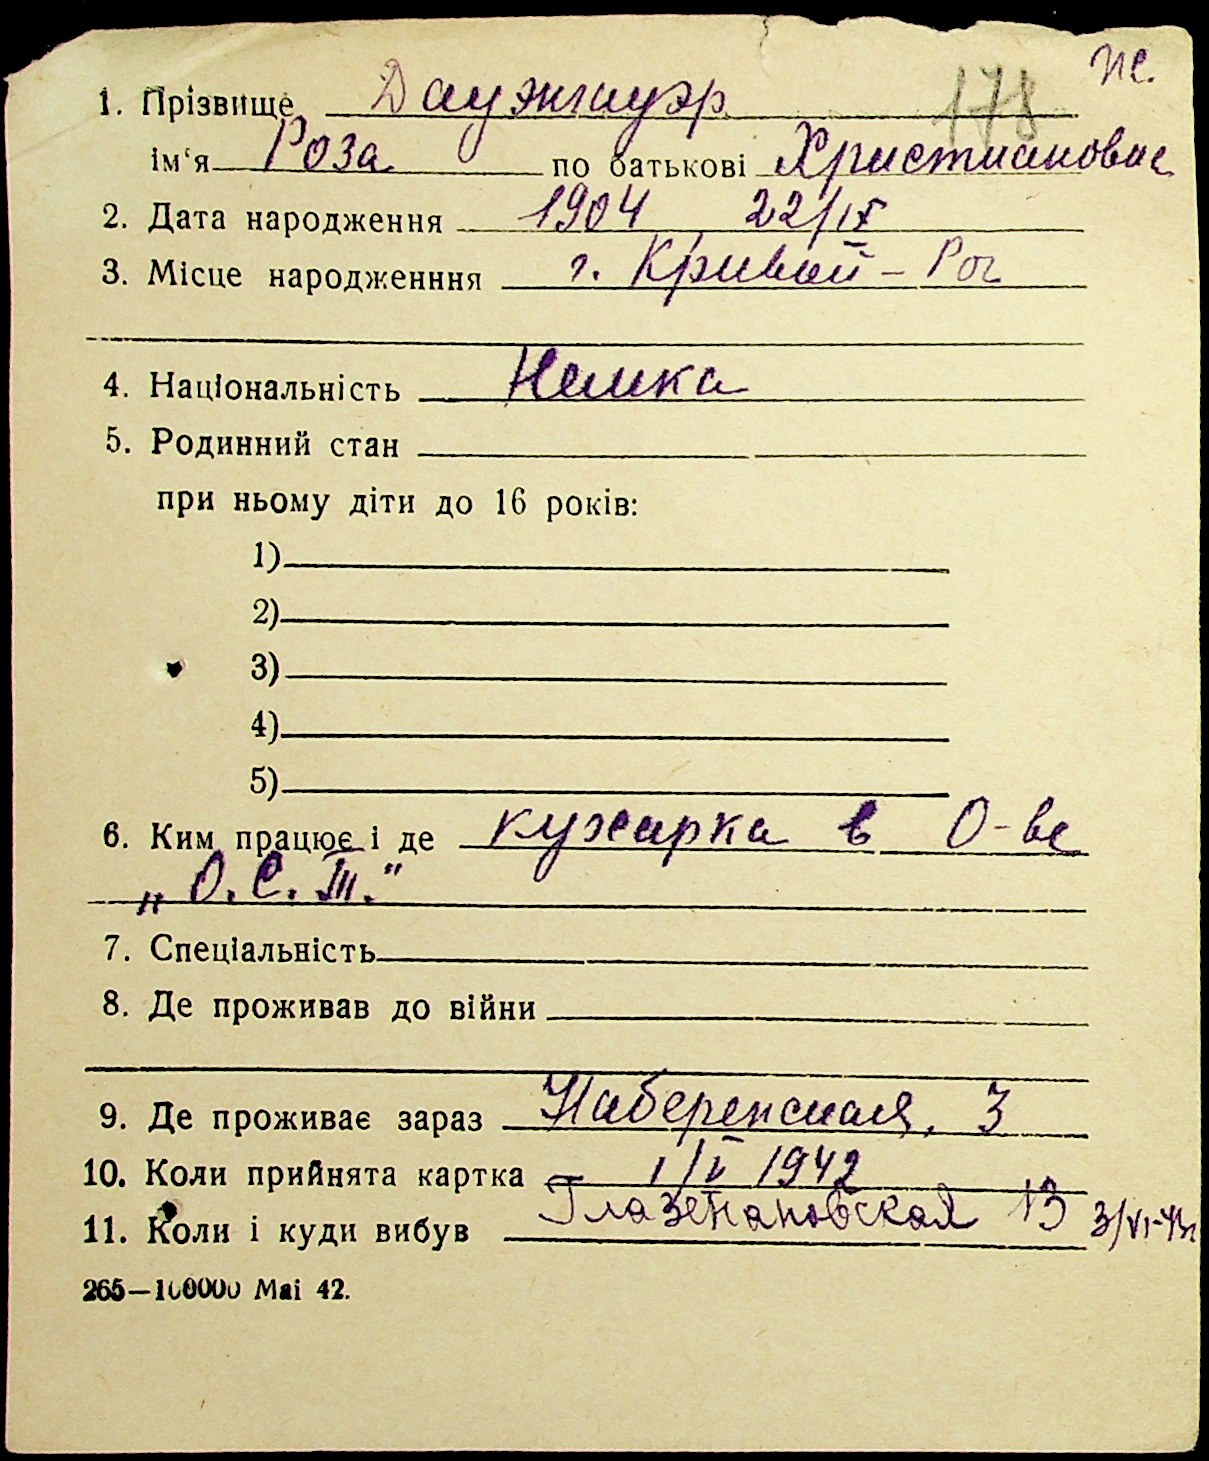 ж.
178
1. Прізвище Даужнауэр
ім‘я Роза по батькові Христиановна
2. Дата народження 1904 22/IX
3. Місце народженння г. Кривой-Рог
4. Національність Немка
5. Родинний стан
при ньому діти до 16 років:
1)
2)
3)
4)
5)
6. Ким працює і де кухарка в О-ве
„О.С.Ш.“
7. Спеціальність
8. Де проживав до війни
9. Де проживає зараз Набережная, 3
10. Коли прийнята картка 1/V 1942
11. Коли і куди вибув Глазенаповская 13 3/VI-43г
265—100000 Маі 42.